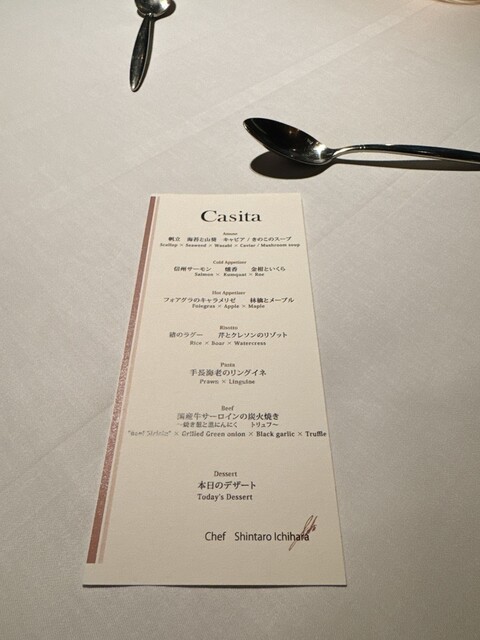 Casita
Amuse
帆立 海苔と山葵 キャビア / きのこのスープ
Scallop × Seaweed × Wasabi × Caviar / Mushroom soup
Cold Appetizer
信州サーモン 燻香 金柑といくら
Salmon × Kumquat × Roe
Hot Appetizer
フォアグラのキャラメリゼ 林檎とメープル
Foiegras × Apple × Maple
Risotto
猪のラグー 芹とクレソンのリゾット
Rice × Boar × Watercress
Pasta
手長海老のリングイネ
Prawn × Linguine
Beef
国産牛サーロインの炭火焼き
～焼き葱と黒にんにく トリュフ～
× Grilled Green onion × Black garlic × Truffle
Dessert
本日のデザート
Today's Dessert
Chef Shintaro Ichihara